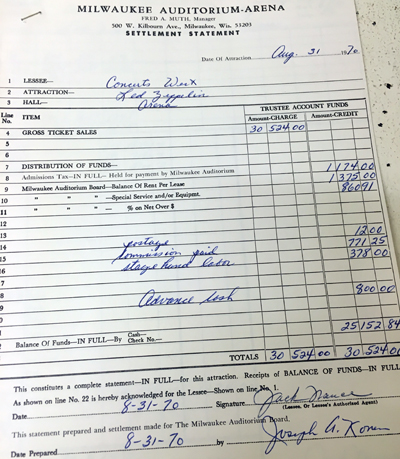 MILWAUKEE AUDITORIUM-ARENA
FRED A. MUTH, Manager
500 W. Kilbourn Ave., Milwaukee, Wis. 53203
SETTLEMENT STATEMENT
Date Of Attraction Aug. 31 1970
1 LESSEE— Concerts West
2 ATTRACTION— Led Zeppelin
3 HALL— Arena
Line No. ITEM TRUSTEE ACCOUNT FUNDS
Amount-CHARGE Amount-CREDIT
4 GROSS TICKET SALES 30 524.00
5
6
7 DISTRIBUTION OF FUNDS— 1174.00
8 Admissions Tax—IN FULL— Held for payment by Milwaukee Auditorium 1375.00
9 Milwaukee Auditorium Board—Balance Of Rent Per Lease 860 91
10 " " " —Special Service and/or Equipent.
11 " " " — % on Net Over $
13 12.00
14 postage 771 25
15 commission paid 378.00
16 stage hand labor
8 Advance Cash 800 00
25 152 84
2 Balance Of Funds—IN FULL—By Cash— Check No.—
TOTALS 30 524.00 30 524.00
This constitutes a complete statement—IN FULL—for this attraction. Receipts of BALANCE OF FUNDS—IN FULL
As shown on line No. 22 is hereby acknowledged for the Lessee—Shown on line No. 1.
Date 8-31-70 Signature Jack Nance
(Lessee, Or Lessee's Authorized Agent)
This statement prepared and settlement made for The Milwaukee Auditorium Board.
Date Prepared 8-31-70 by Joseph A.